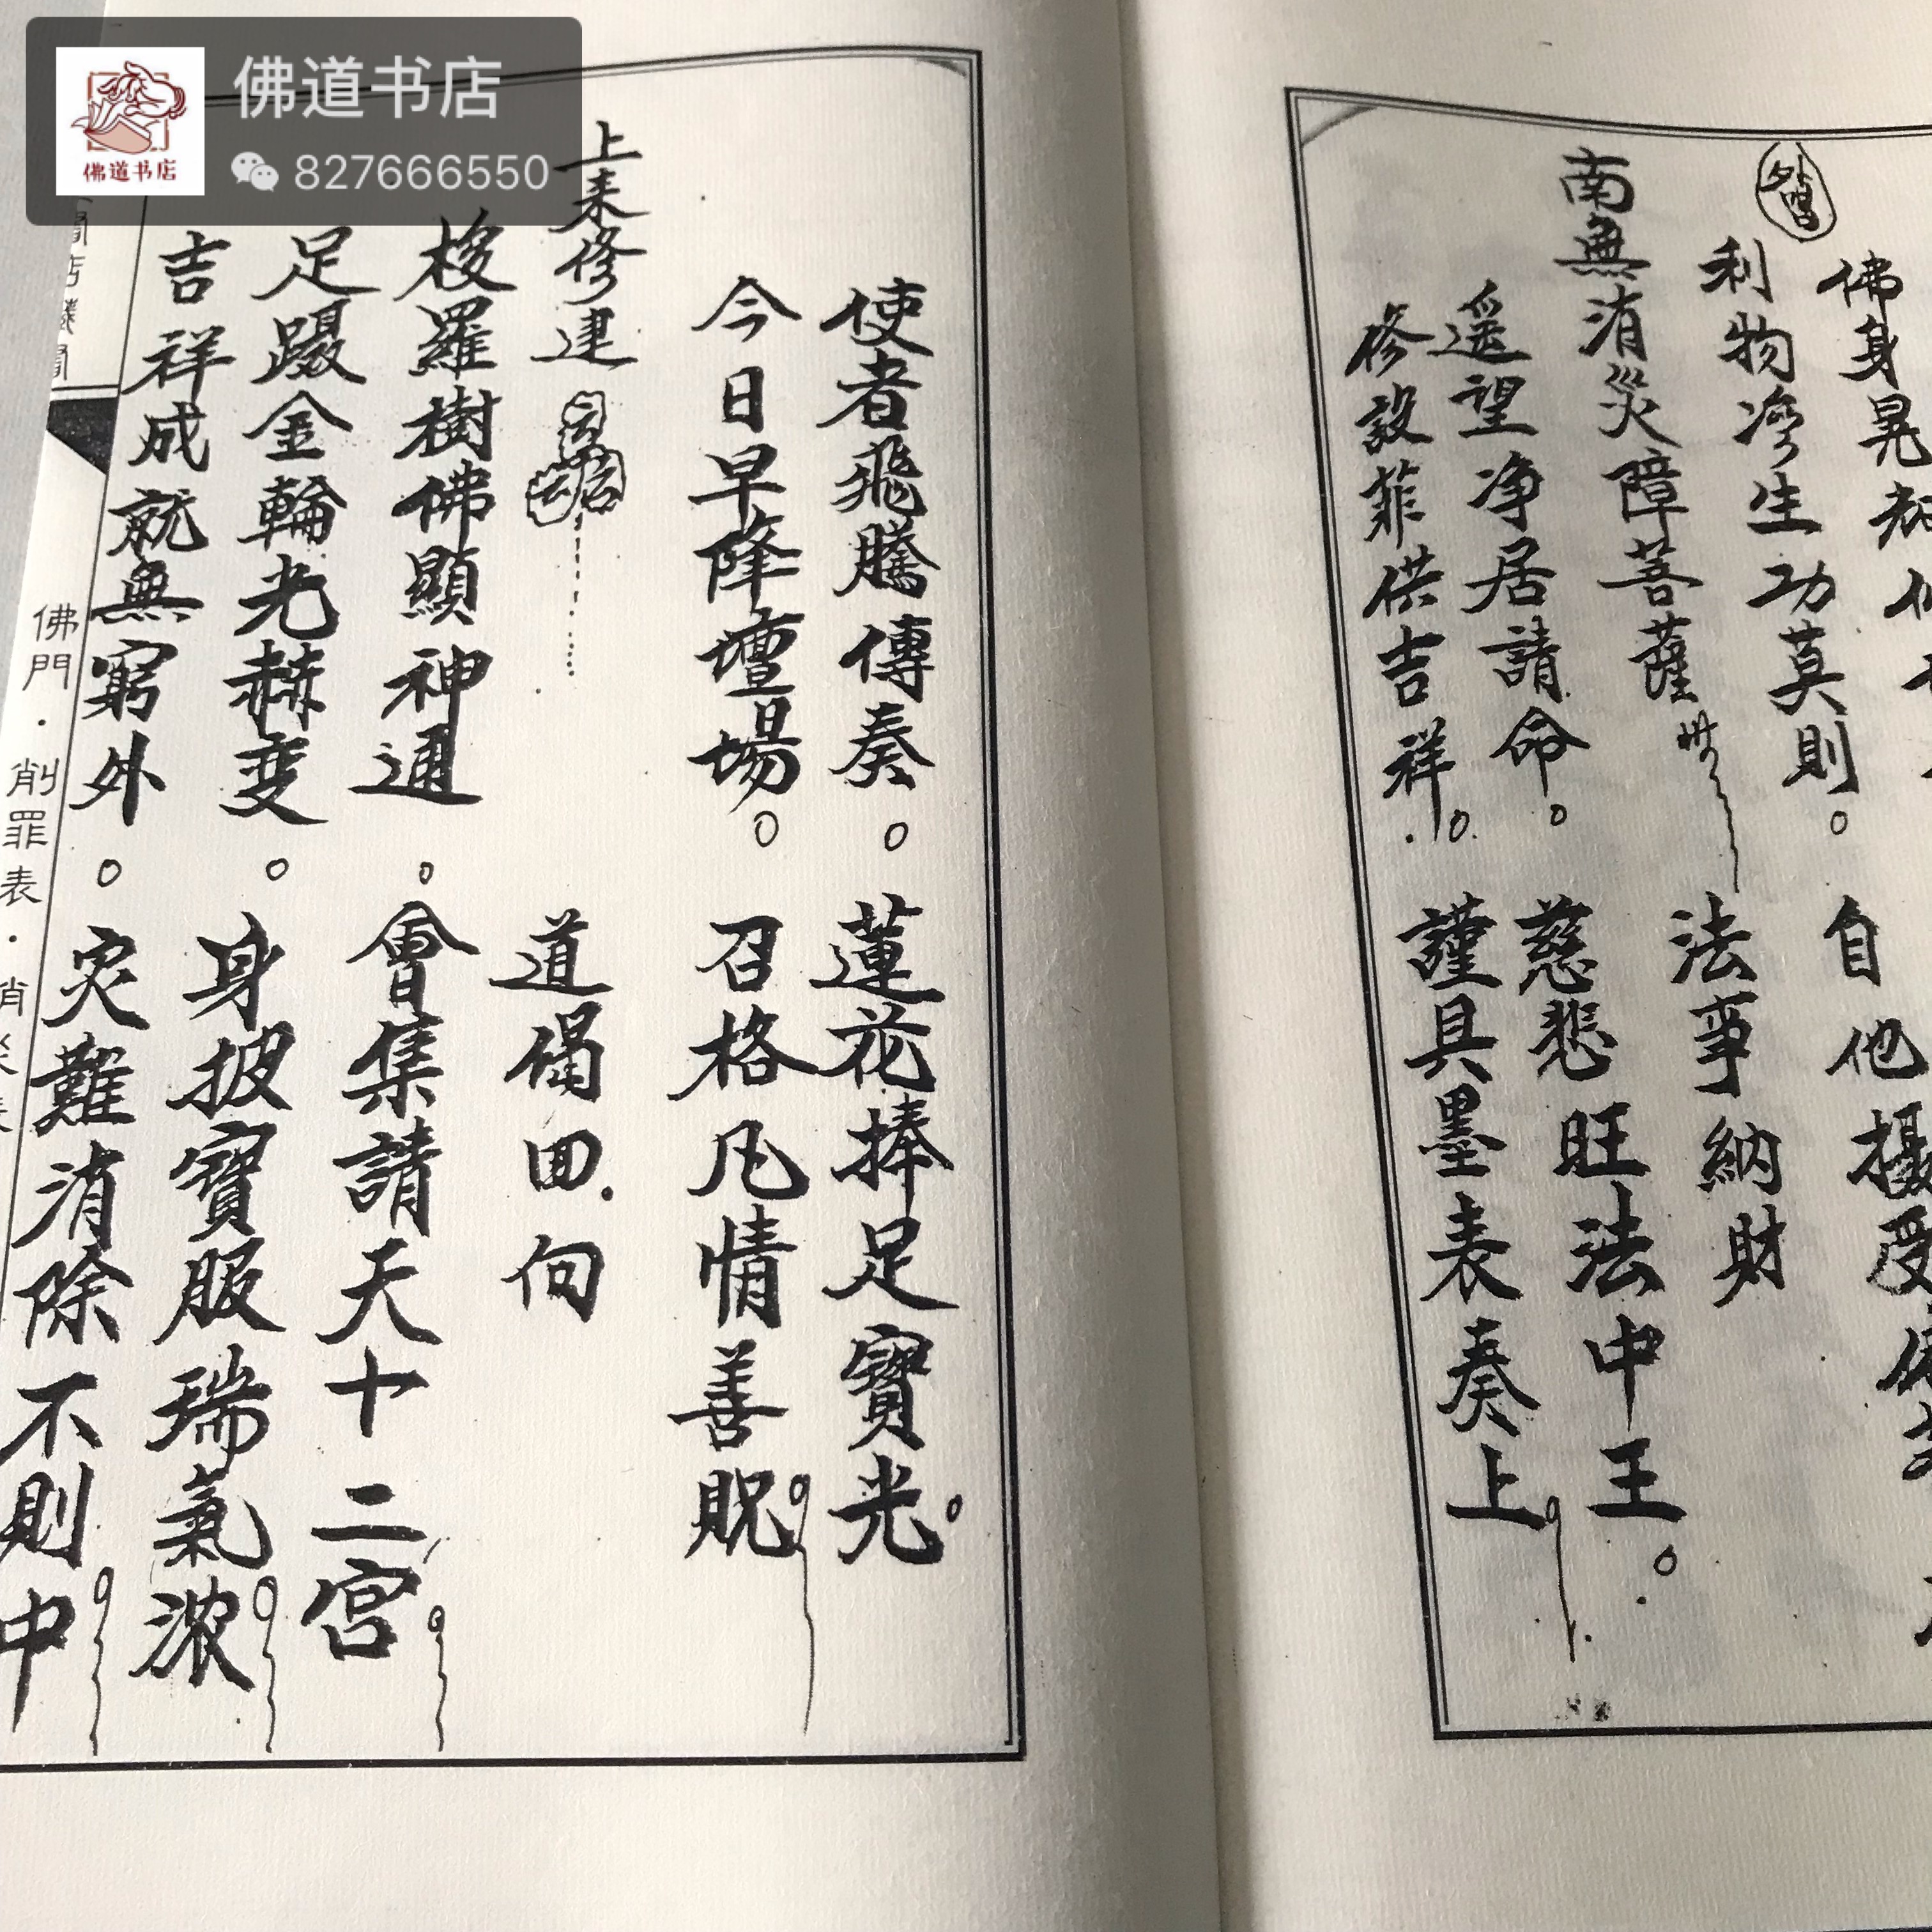 佛道书店
佛道书店
827666550
佛身晃
自他攝受
利物濟生功莫則。
法事納財
南無消災障菩薩
遥望净居請命。慈悲旺法中王。
修設菲供吉祥。謹具墨表奏上
使者飛騰傳奏。蓮花捧足寶光。
今日早降壇場。召格凡情善貺
上来修建
道偈回向
梭羅樹佛顯神通。會集請天十二宮
足躡金輪光赫变。身披寶服瑞氣浓
吉祥成就無窮外。灾難消除不則中
佛門·削罪表·消